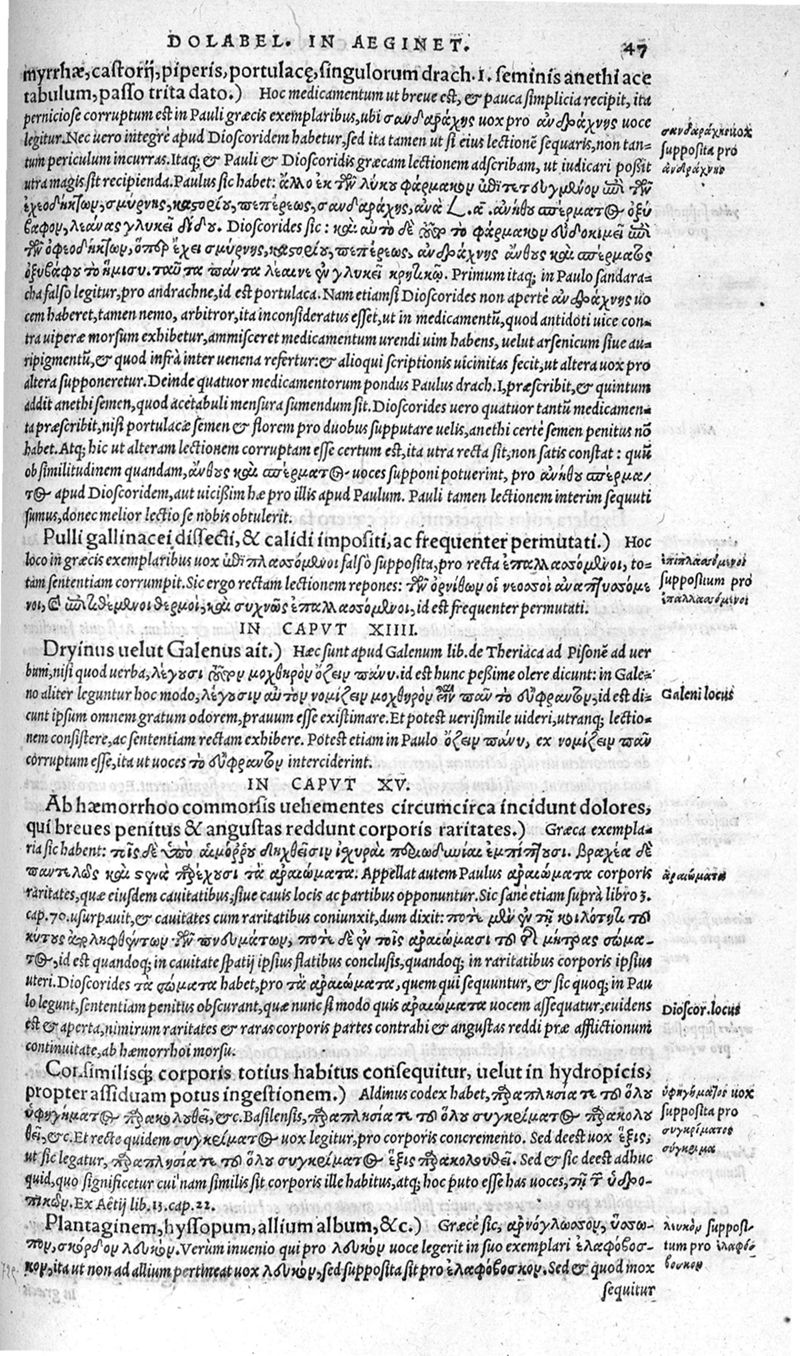 DOLABEL. IN AEGINET.
47
myrrhæ, castorij, piperis, portulacę, singulorum drach. 1. seminis anethi ace
tabulum, passo trita dato.) Hoc medicamentum ut breue est, & pauca simplicia recipit, ita
perniciose corruptum est in Pauli græcis exemplaribus, ubi σανδαράχης uox pro ανδράχνης uoce
legitur. Nec uero integrè apud Dioscoridem habetur, sed ita tamen ut si eius lectionē sequaris, non tan-
tum periculum incurras. Itaq; & Pauli & Dioscoridis græcam lectionem adscribam, ut iudicari possit
utra magis sit recipienda. Paulus sic habet: ἄλλο ἐκ τῶν λύκου φάρμακον
ἐχεοδήκτων, σμύρνης, καστορίου, πεπέρεως, σανδαράχης, ἀνὰ ἀνήθου σπέρματος ὀξύ
βαφον, λεάνας γλυκεῖ δίδου. Dioscorides sic: καὶ αὐτὸ δὲ τὸ φάρμακον εὐδοκιμεῖ ἐπὶ
τῶν ὀφεοδήκτων, ὅπερ ἔχει σμύρνης, καστορίου, πεπέρεως, ἀνδράχνης ἄνθους καὶ σπέρματος
ὀξυβάφου τὸ ἥμισυ. ταῦτα πάντα λέαινε ἐν γλυκεῖ κρητικῷ. Primum itaq; in Paulo sandara-
cha falso legitur, pro andrachne, id est portulaca. Nam etiamsi Dioscorides non apertè ανδράχνης uo
cem haberet, tamen nemo, arbitror, ita inconsideratus esset, ut in medicamentū, quod antidoti uice con-
tra uiperæ morsum exhibetur, ammisceret medicamentum urendi uim habens, uelut arsenicum siue au-
ripigmentū, & quod infrà inter uenena refertur: & alioqui scriptionis uicinitas fecit, ut altera uox pro
altera supponeretur. Deinde quatuor medicamentorum pondus Paulus drach. I, præscribit, & quintum
addit anethi semen, quod acetabuli mensura sumendum sit. Dioscorides uero quatuor tantū medicamen-
ta præscribit, nisi portulacæ semen & florem pro duobus supputare uelis, anethi certè semen penitus nō
habet. Atq; hic ut alteram lectionem corruptam esse certum est, ita utra recta sit, non satis constat: quū
ob similitudinem quandam, ἄνθους καὶ σπέρματος uoces supponi potuerint, pro ἀνήθου σπέρμα/
τος apud Dioscoridem, aut uicißim hæ pro illis apud Paulum. Pauli tamen lectionem interim sequuti
sumus, donec melior lectio se nobis obtulerit.
Pulli gallinacei dissecti, & calidi impositi, ac frequenter permutati.) Hoc
loco in græcis exemplaribus uox ἐπιπλασσόμενοι falsò supposita, pro recta ἐπαλλασσόμενοι, to-
tam sententiam corrumpit. Sic ergo rectam lectionem repones: τῶν ὀρνίθων οἱ νεοσσοὶ ἀναπτυσόμε
νοι, καὶ ἐπιτιθέμενοι θερμοὶ, καὶ συχνῶς ἐπαλλασσόμενοι, id est frequenter permutati.
IN CAPVT XIIII.
Dryinus uelut Galenus ait.) Hæc sunt apud Galenum lib. de Theriaca ad Pisonē ad uer
bum, nisi quod uerba, λέγουσι μοχθηρὸν ὄζειν πάνυ. id est hunc peßime olere dicunt: in Gale-
no aliter leguntur hoc modo, λέγουσιν αὐτὸν νομίζειν μοχθηρὸν εἶναι πᾶν τὸ εὔφραντον, id est di-
cunt ipsum omnem gratum odorem, prauum esse existimare. Et potest uerisimile uideri, utranq; lectio-
nem consistere, ac sententiam rectam exhibere. Potest etiam in Paulo ὄζειν πάνυ, ex νομίζειν πᾶν
corruptum esse, ita ut uoces τὸ εὔφραντον interciderint.
IN CAPVT XV.
Ab hæmorrhoo commorsis uehementes circumcirca incidunt dolores,
qui breues penitus & angustas reddunt corporis raritates.) Græca exempla-
ria sic habent: τοῖς δὲ ὑπὸ αἱμόρρου δηχθεῖσιν ἰσχυραὶ περιωδυνίαι ἐμπίπτουσι. βραχέα δὲ
παντελῶς καὶ στενὰ παρέχουσι τὰ ἀραιώματα. Appellat autem Paulus ἀραιώματα corporis
raritates, quæ eiusdem cauitatibus, siue cauis locis ac partibus opponuntur. Sic sanè etiam suprà libro 3.
cap. 70. usurpauit, & cauitates cum raritatibus coniunxit, dum dixit: ποτὲ μὲν ἐν τῇ κοιλότητι τοῦ
κύτους πνευμάτων, ποτὲ δὲ ἐν τοῖς ἀραιώμασι τοῦ τῆς μήτρας σώμα-
τος, id est quandoq; in cauitate spatij ipsius flatibus conclusis, quandoq; in raritatibus corporis ipsius
uteri. Dioscorides τὰ σώματα habet, pro τὰ ἀραιώματα, quem qui sequuntur, & sic quoq; in Pau
lo legunt, sententiam penitus obscurant, quæ nunc si modo quis ἀραιώματα uocem assequatur, euidens
est & aperta, nimirum raritates & raras corporis partes contrahi & angustas reddi præ afflictionum
continuitate, ab hæmorrhoi morsu.
Consimilisq; corporis totius habitus consequitur, uelut in hydropicis,
propter assiduam potus ingestionem.) Aldinus codex habet, παραπλησία τε τοῦ ὅλου
ὑφηγήματος παρακολουθεῖ, &c. Basiliensis, παραπλησία τε τοῦ ὅλου συγκρίματος παρακολου
θεῖ, &c. Et recte quidem συγκρίματος uox legitur, pro corporis concremento. Sed deest uox ἕξις,
ut sic legatur, παραπλησία τε τοῦ ὅλου συγκρίματος ἕξις παρακολουθεῖ. Sed & sic deest adhuc
quid, quo significetur cui nam similis sit corporis ille habitus, atq; hoc puto esse has uoces, τῇ τῶν ὑδρο-
πικῶν. Ex Aëtij lib. 13. cap. 22.
Plantaginem, hyssopum, allium album, &c.) Græcè sic, ἀρνόγλωσσον, ὕσσω-
πον, σκόρδον λευκόν. Verum inuenio qui pro λευκόν uoce legerit in suo exemplari ἐλαφόβοσ-
κον, ita ut non ad allium pertineat uox λευκόν, sed supposita sit pro ἐλαφόβοσκον. Sed & quod mox
sequitur
σανδαράχης uox
supposita pro
ἀνδράχνης
ἐπιπλασσόμενοι
suppositum pro
ἐπαλλασσόμενοι
Galeni locus
ἀραιώματα
Dioscor. locus
ὑφηγήματος uox
supposita pro
συγκρίματος
σύγκριμα
λευκὸν supposi-
tum pro ἐλαφό
βοσκον